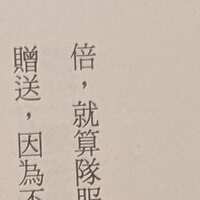 倍，就算隊服
贈送，因為